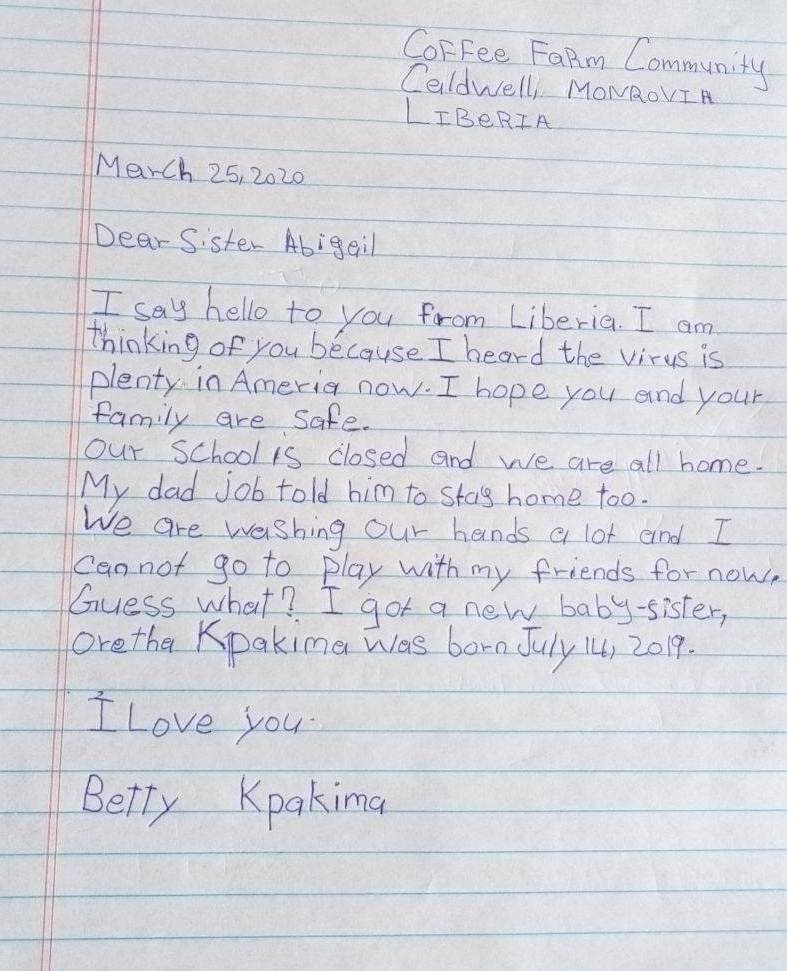 Coffee Farm Community
Caldwell, MONROVIA
LIBERIA
March 25, 2020
Dear Sister Abigail
I say hello to you from Liberia. I am
thinking of you because I heard the virus is
plenty in Ameria now. I hope you and your
family are safe.
Our school is closed and we are all home.
My dad job told him to stay home too.
We are washing our hands a lot and I
cannot go to play with my friends for now.
Guess what? I got a new baby-sister,
Oretha Kpakima was born July 14, 2019.
I Love you.
Betty Kpakima